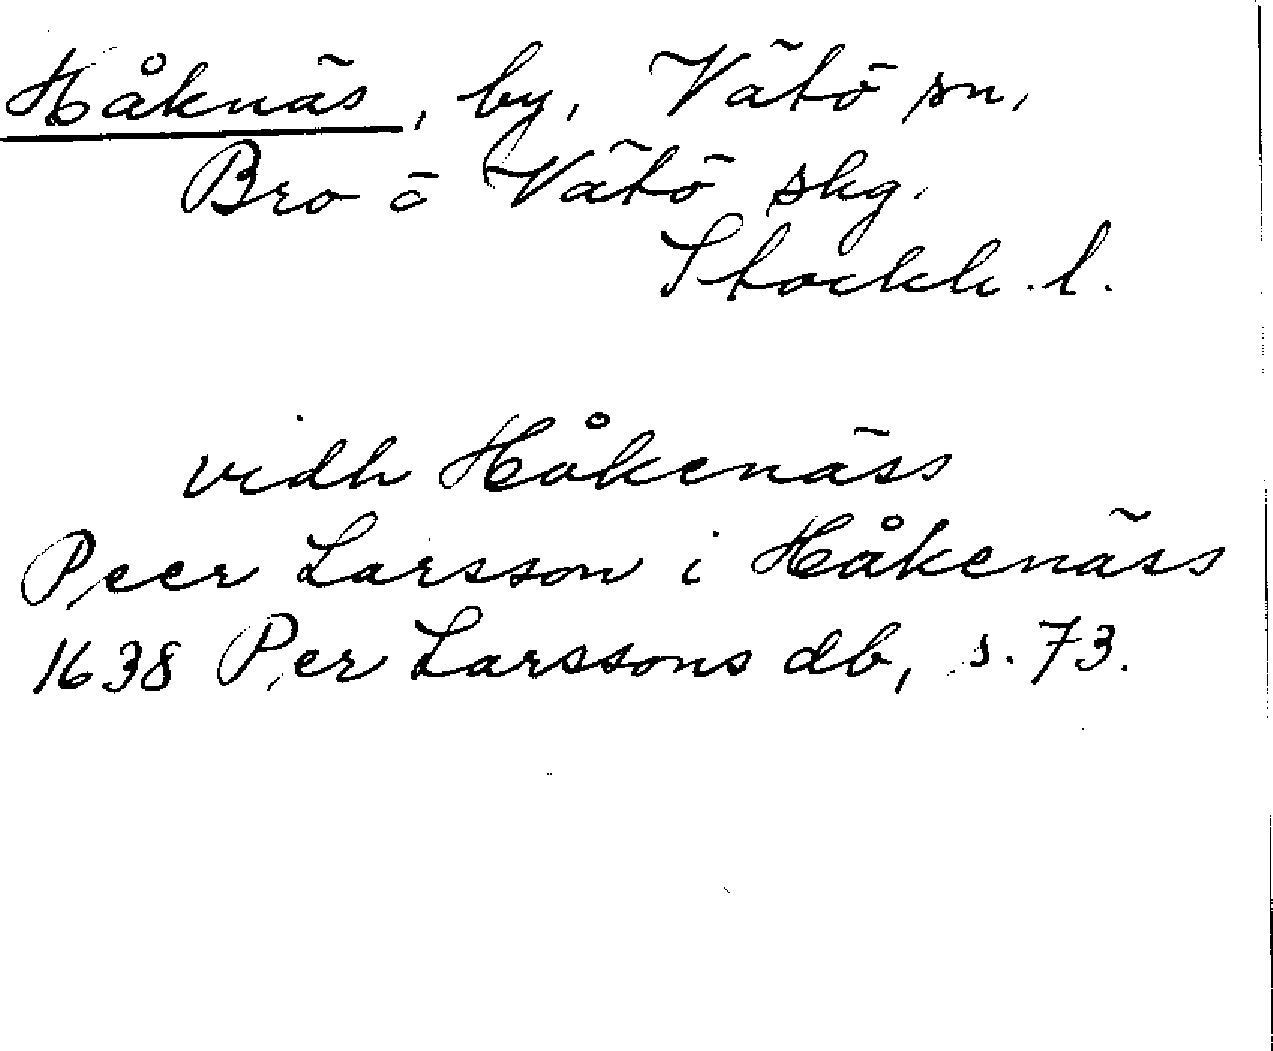 Håknäs, by, Vätö sn,
Bro o Vätö skg.
Stockh. l.
vidh Håkenäss
Peer Larsson i Håkenäss
1638 Per Larssons db, s. 73.